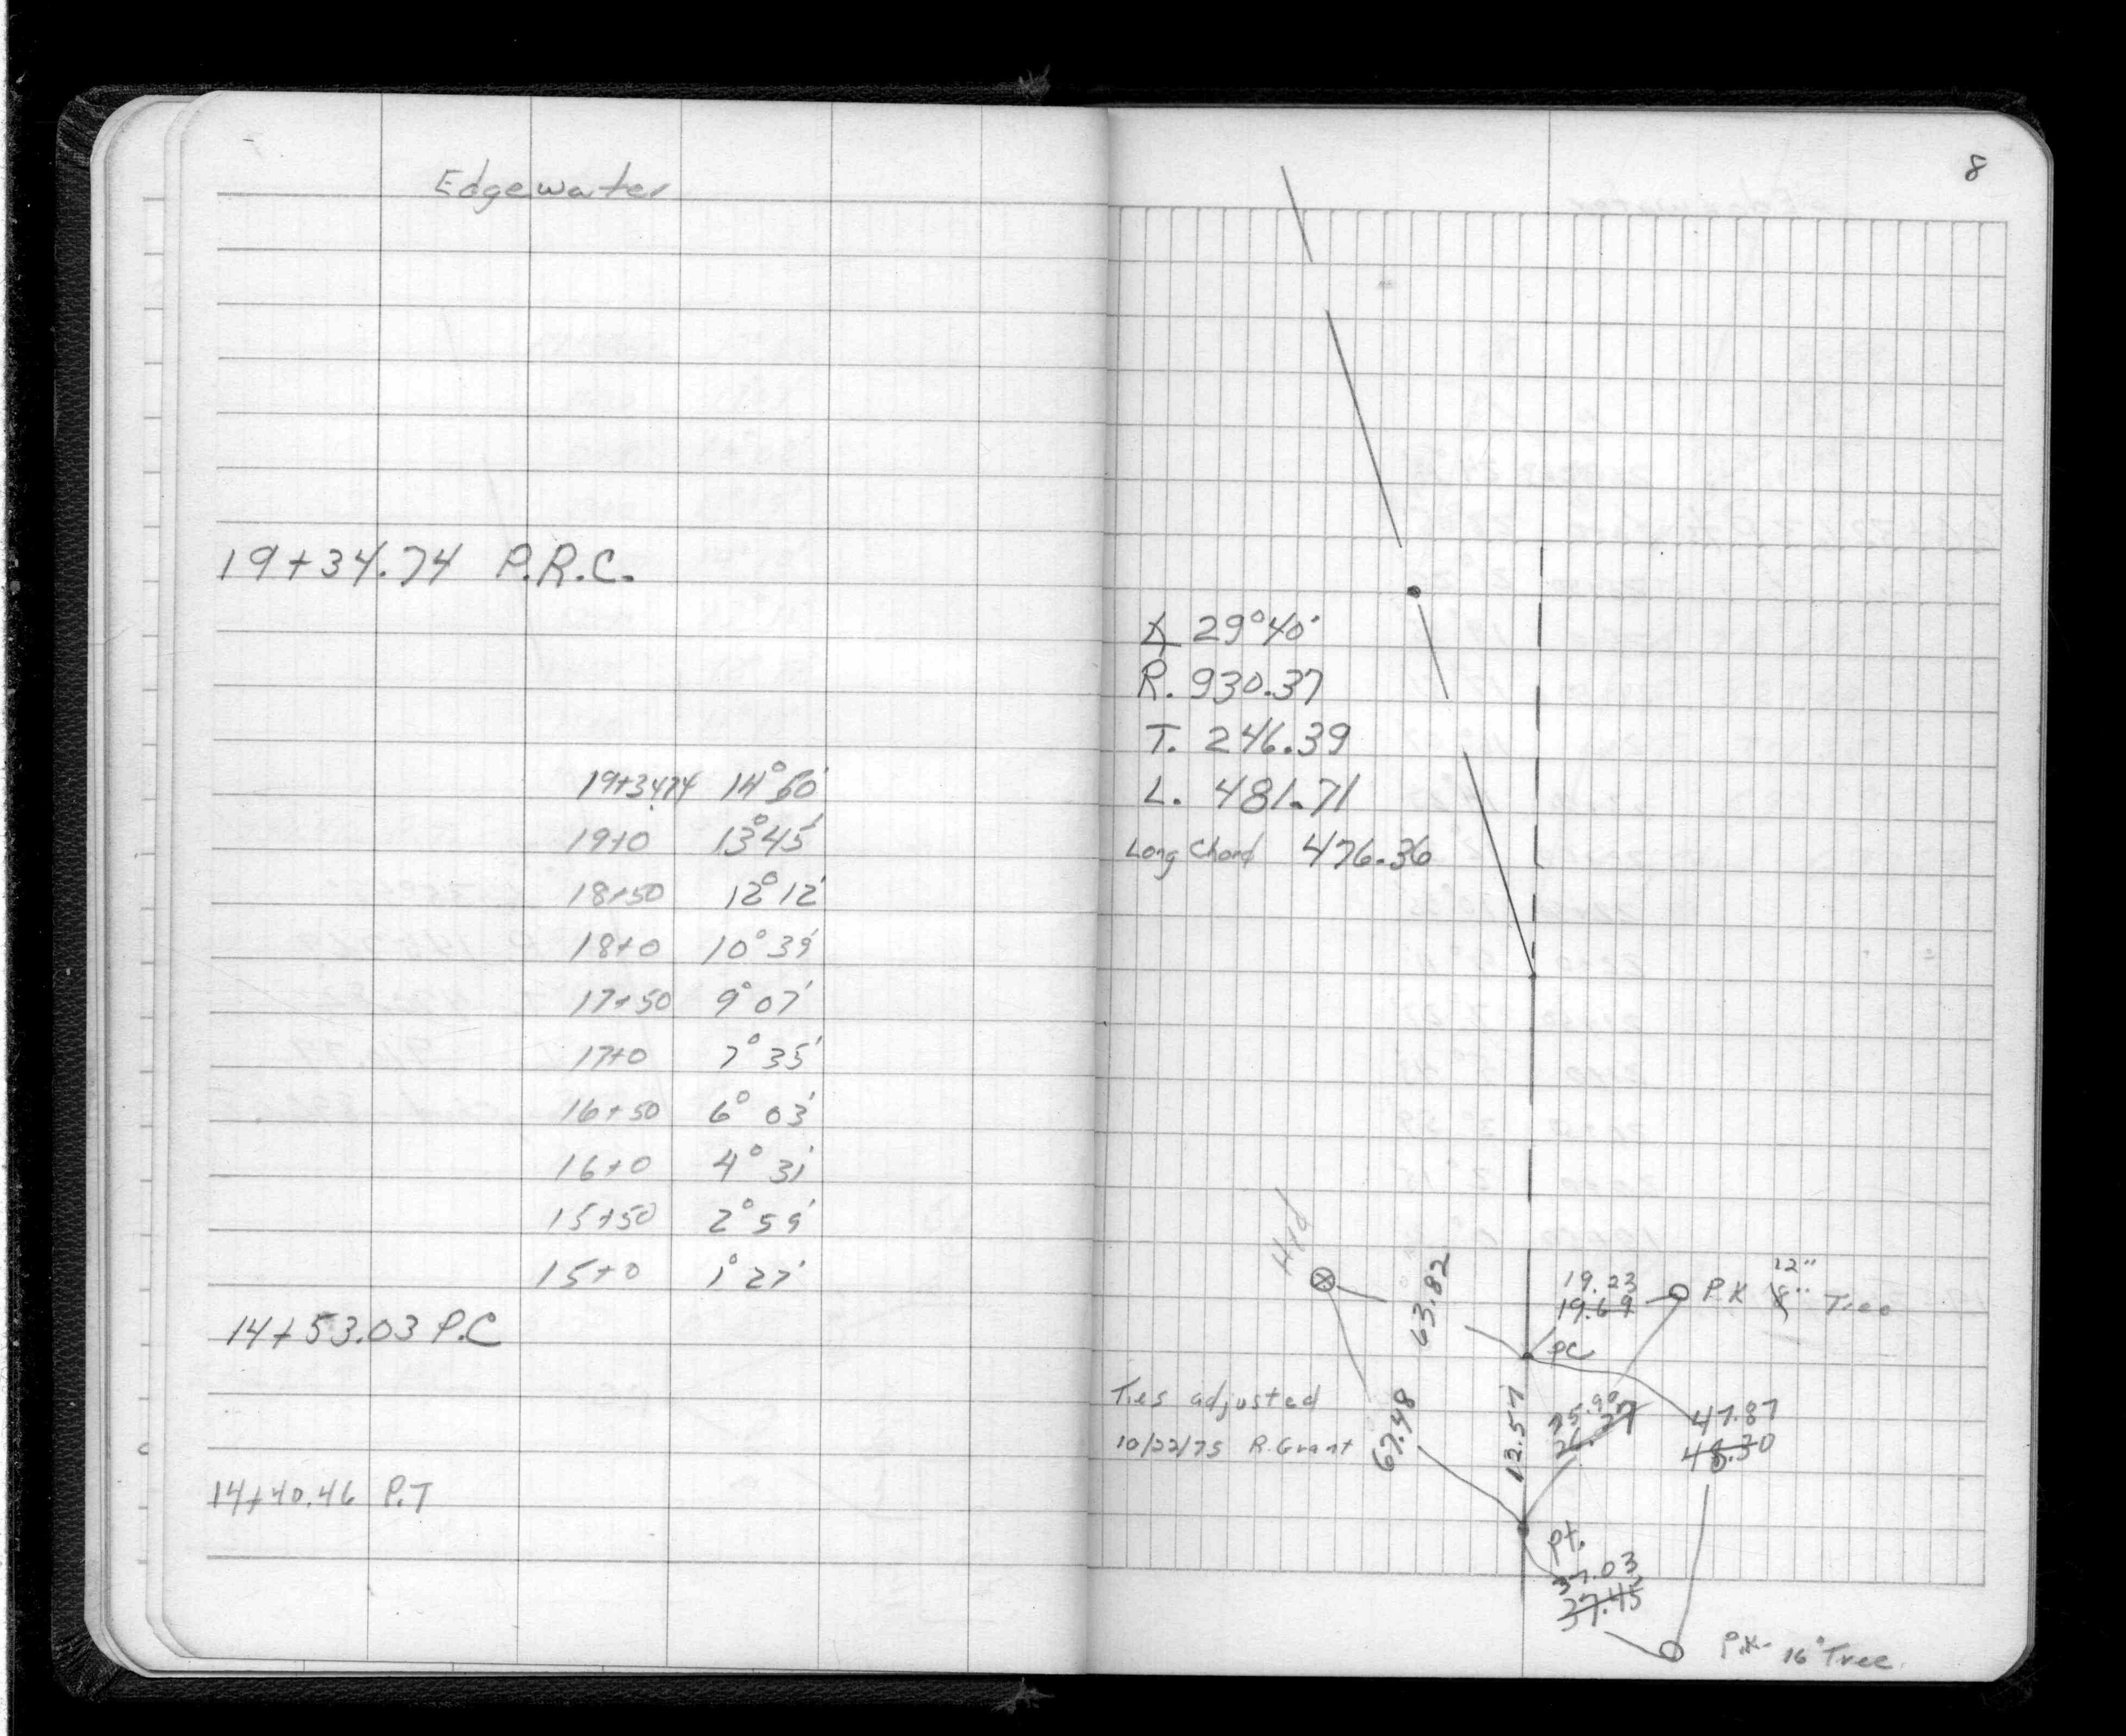 Edgewater
19+34.74 P.R.C.
19+34.74 14°50'
19+0 13°45'
18+50 12°12'
18+0 10°39'
17+50 9°07'
17+0 7°35'
16+50 6°03'
16+0 4°31'
15+50 2°59'
15+0 1°27'
14+53.03 P.C
14+40.46 P.T
8
∆ 29°40'
R. 930.37
T. 246.39
L. 481.71
Long Chord 476.36
Hyd
63.82
19.23
19.69
P.K 8" Tree
12"
PC
Ties adjusted
10/22/75 R.Grant
67.48
12.57
25.90
26.27
47.87
48.30
Pt.
37.03
37.45
P.K- 16" Tree